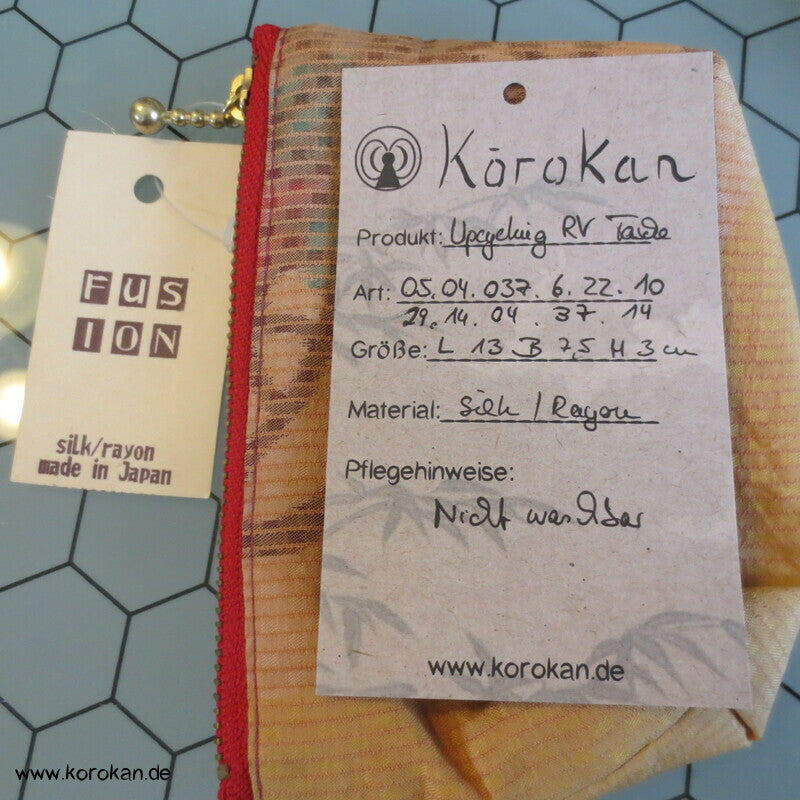 FUS
ION
silk/rayon
made in Japan
Kōrokan
Produkt: Upcycling RV Tasche
Art: 05.04.037.6.22.10
29.14.04.37.14
Größe: L 13 B 7,5 H 3 cm
Material: Silk / Rayon
Pflegehinweise:
Nicht waschbar
www.korokan.de
www.korokan.de